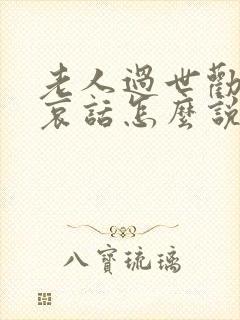 老人過世勸
哀話怎麼說
八寶琉璃